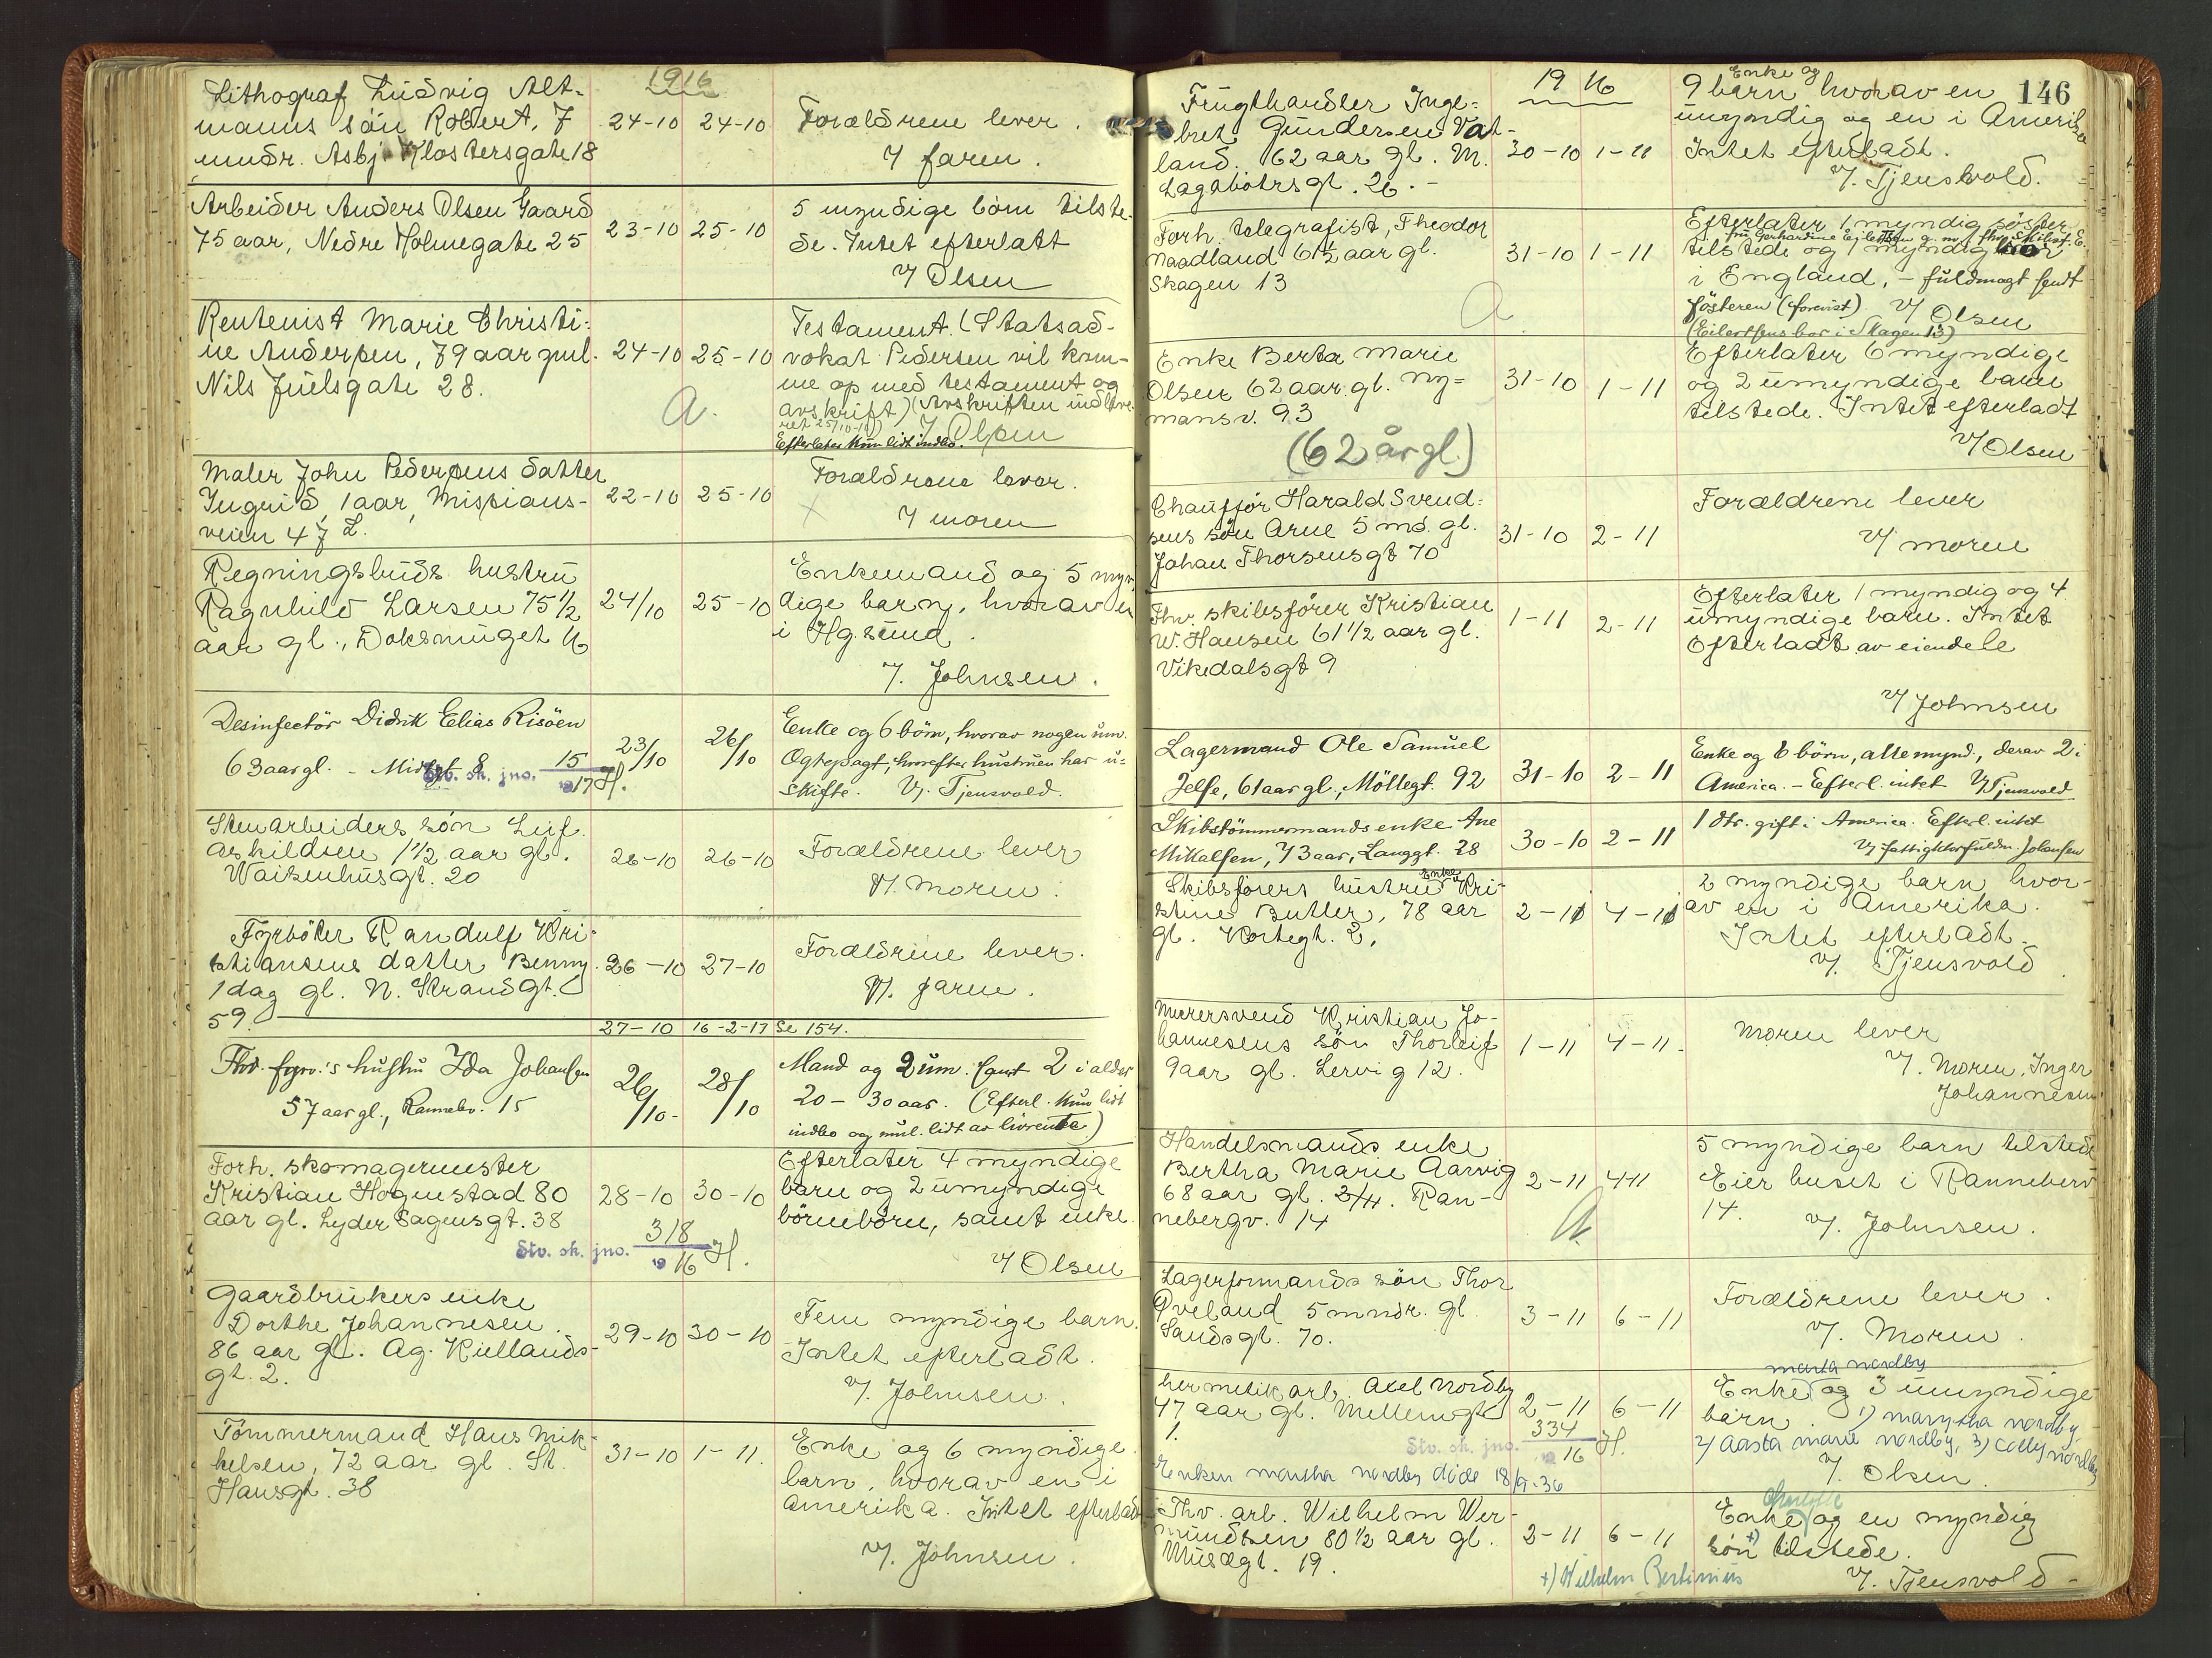 1916
Lithograf Ludvig Alt-
manns søn Robert, 7
mndr. Asbj. Klostersgate 18
24-10 24-10
Forældrene lever.
V/ faren.
Arbeider Anders Olsen Gaard
75 aar, Nedre Holmegate 25
23-10 25-10
5 myndige børn tilste-
de. Intet efterlatt
V/ Olsen
Rentenist Marie Christi-
ne Andersen, 79 aar gml.
Nils Juelsgate 28.
24-10 25-10
a.
Testament. (Statsad-
vokat Pedersen vil kom-
me op med testament og
avskrift) (Avskriften indleve-
ret 25/10-16)
V/ Olsen
Efterlater kun lidt indbo.
Maler John Pedersens datter
Ingrid, 1 aar, Misjons-
veien 47 L.
22-10 25-10
Forældrene lever.
V/ moren
Regningsbuds hustru
Ragnhild Larsen 75 1/2
aar gl., Doksmuget 16
24/10 25-10
Enkemand og 5 myn-
dige barn, hvorav en
i Hg.sund.
V/. Johnsen.
Desinfectør Didrik Elias Risøen
63 aar gl. - Midtgt 8
Stv. sk. jno. 15
1917 H.
23/10 26/10
Enke og 6 børn, hvorav nogen um.
Ogtepagt, hvorefter hustruen har u-
skifte. V/. Tjensvold.
Stenarbeiders søn Leif
Askildsen 1 1/2 aar gl.
Waisenhusgt. 20
26-10 26-10
Forældrene lever
V/. moren.
Fyrbøter Randulf Kri-
stiansens datter Benny
1 dag gl. N. Strandgt.
59.
26-10 27-10
Forældrene lever.
V/. faren.
27-10 16-2-17 Se 154.
Thv. fyrv.'s hustru Ida Johansen
57 aar gl., Rannebv. 15
26/10- 28/10
Mand og 2 um. samt 2 i alder
20 - 30 aar. (Efterl. kun lidt
indbo og mul. lidt av livrente)
Forh. skomagermester
Kristian Hognestad 80
aar gl. Lyder Sagensgt. 38
Stv. sk. jno. 318
1916 H.
28-10 30-10
Efterlater 4 myndige
barn og 2 umyndige
børnebørn, samt enke.
V/ Olsen
Gaardbrukers enke
Dorthe Johannesen.
86 aar gl. Ag. Kiellands-
gt. 2.
29-10 30-10
Fem myndige barn.
Intet efterladt.
V/. Johnsen.
Tømmermand Hans Mik-
kelsen, 72 aar gl. St.
Hansgt. 38
31-10 1-11.
Enke og 6 myndige
barn, hvorav en i
Amerika. Intet efterladt
V/. Johnsen.
146
1916
Frugthandler Inge-
bret Gundersen Vat-
land. 62 aar gl. M.
Lagabøtersgt. 26.-
30-10 1-11
Enke og
9 barn hvorav en
umyndig og en i Amerika
Intet efterladt.
V/. Tjensvold.
Forh. telegrafist, Theodor
Naadland 61 1/2 aar gl.
Skagen 13
31-10 1-11
a
Efterlater 1 myndig søster
fru Gerhardine Eilertsen g. m. fhv. skibsf. E.
tilstede og 1 myndig bror
i England, - fuldmagt sendt
søsteren (forevist) V/ Olsen
(Eilertsens bor i Skagen 13)
Enke Berta Marie
Olsen 62 aar gl. Ny-
mansv. 93
(62 år gl.)
31-10 1-11
Efterlater 6 myndige
og 2 umyndige barn
tilstede. Intet efterladt
V/ Olsen
Chauffør Harald Svend-
sens søn Arne 5 md. gl.
Johan Thorsensgt 70
31-10 2-11
Forældrene lever
V/ moren
Fhv. skibsfører Kristian
W. Hansen 61 1/2 aar gl.
Vikedalsgt 9
1-11 2-11
Efterlater 1 myndig og 4
umyndige barn. Intet
efterladt av eiendele
V/ Johnsen
Lagermand Ole Samuel
Jelse, 61 aar gl., Møllegt. 92
31-10 2-11
Enke og 6 børn, alle mynd., derav 2 i
America. - Efterl. intet V/ Tjensvold
Skibstømmermands enke Ane
Mikalsen, 73 aar, Langgt. 28
30-10 2-11
1 dtr. gift i America. Efterl. intet
V/ fattigktorfuldm. Johansen
Skibsførers hustru enke Kri-
stine Butler, 78 aar
gl. Kortegt. 2.
2-11 4-11
2 myndige barn hvor-
av en i Amerika.
Intet efterladt.
V/. Tjensvold
Murersvend Kristian Jo-
hannesens søn Thorleif
9 aar gl. Lervig 12.
1-11 4-11.
Moren lever
V/. Moren, Inger
Johannesen
Handelsmands enke
Bertha Marie Aarvig
68 aar gl. 3/4. Ran-
nebergv. 14
2-11 4-11
a.
5 myndige barn tilstede
Eier huset i Ranneberv
14.
V/. Johnsen.
Lagerformands søn Thor
Øveland 5 mndr. gl.
Sandsgt. 70.
3-11 6-11
Forældrene lever.
V/. Moren.
hermetikarb. Axel Nordby
47 aar gl. Mellemgt
1.
2-11 6-11
Stv. sk. jno. 334
1916 H.
marta nordby
Enke og 3 umyndige
barn. 1) martha nordby
2) Aasta marie nordby, 3) Colly nordby
V/. Olsen.
Enken martha nordby døde 18/9-36
Thv. arb. Wilhelm Wer-
mundsen 80 1/2 aar gl.
Musægt. 19.
2-11 6-11
Enke og en myndig
søn +) tilstede.
V/. Tjensvold-
+) Wilhelm Bertinius